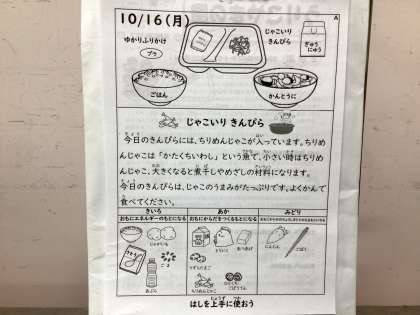 10/16(月)
A
ゆかりふりかけ
プラ
じゃこいり
きんぴら
ぎゅう
にゅう
ごはん
かんとうに
じゃこいり きんぴら
今日のきんぴらには、ちりめんじゃこが入っています。ちりめ
んじゃこは「かたくちいわし」という魚で、小さい時はちりめ
んじゃこ、大きくなると煮干しやめざしの材料になります。
今日のきんぴらは、じゃこのうまみがたっぷりです。よくかんで
食べてください。
きいろ あか みどり
おもにエネルギーのもとになる おもにからだをつくるもとになる
じゃがいも
ごま
あぶら
とりにく
あつあげ
うずらたまご
ちりめんじゃこ
にんじん
ごぼう
はしを上手に使おう